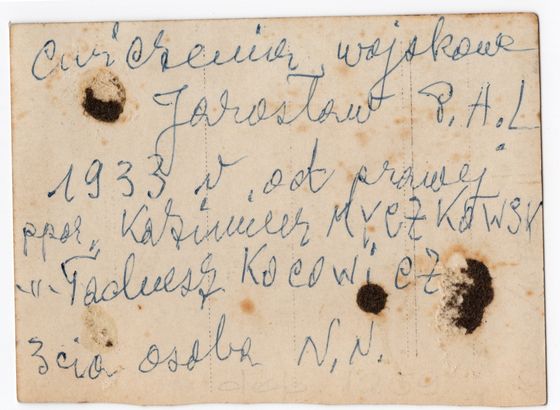 Ćwiczenia wojskowe
Jarosław P.A.L
1933 r od prawej
ppor. Kazimierz MYCZKOWSKI
-"- Tadeusz KOCOWICZ
3cia osoba N.N.